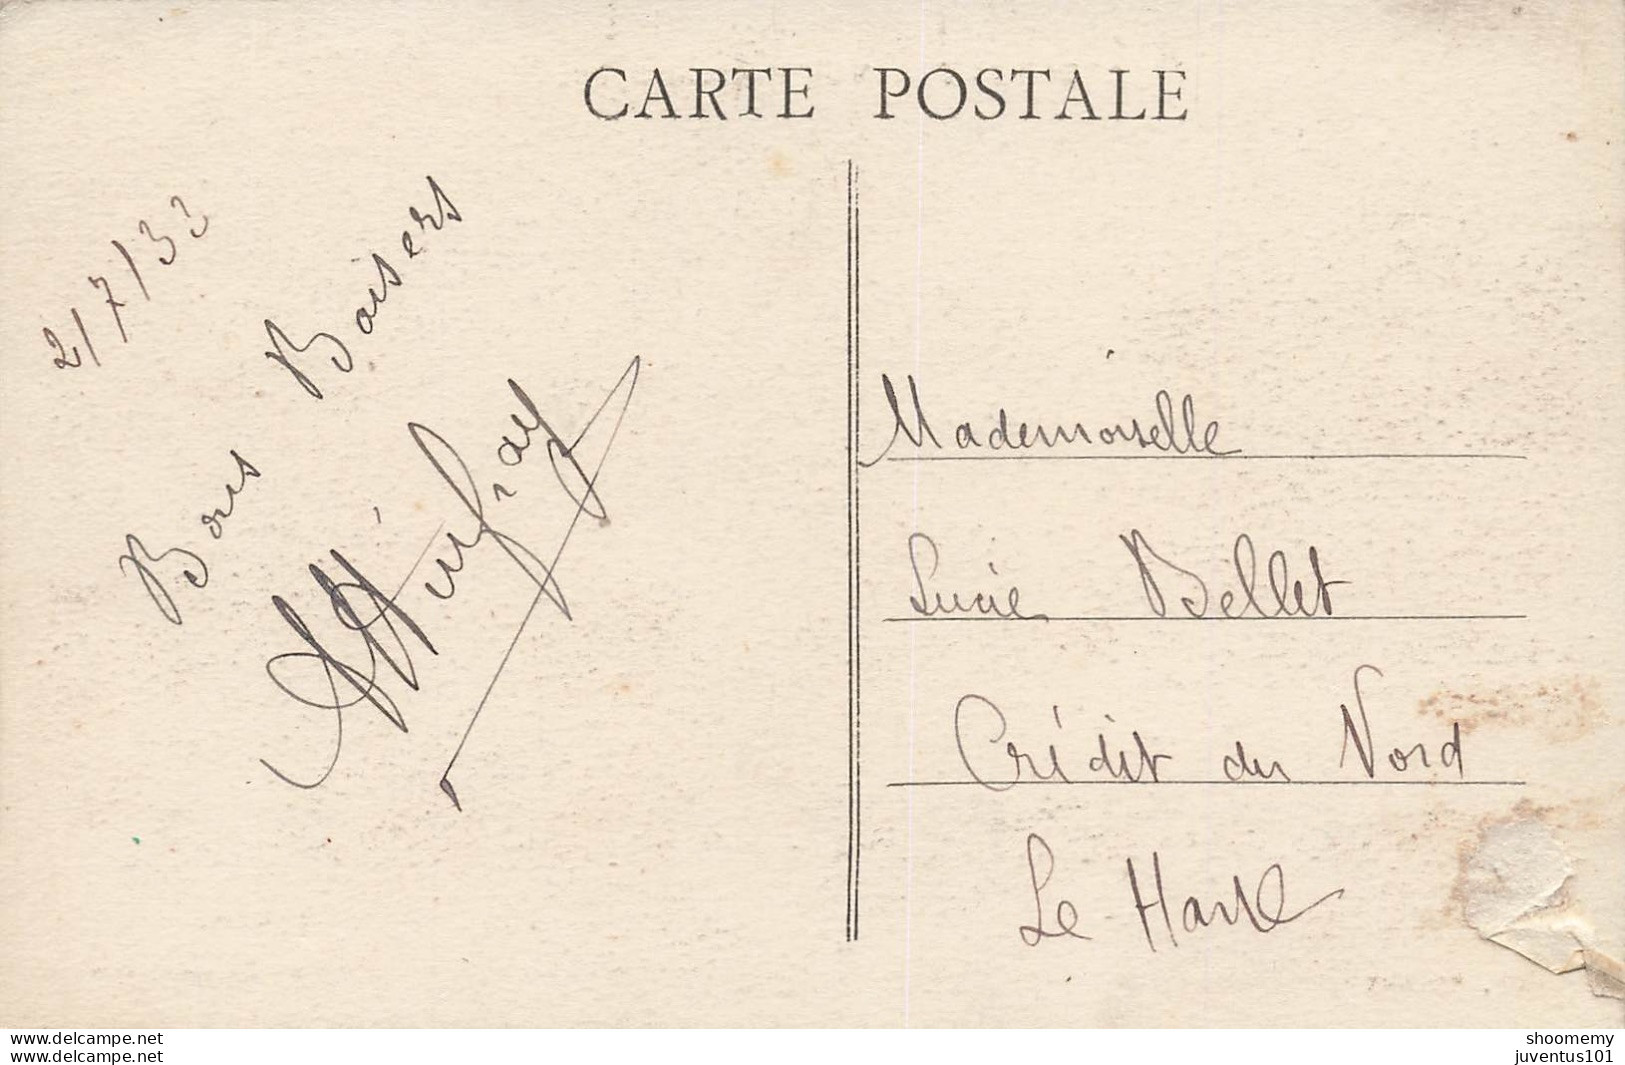 CARTE POSTALE
2/7/32
Bons Baisers
Mademoiselle
Lucie Bellet
Crédit du Nord
Le Havre
www.delcampe.net
www.delcampe.net
shoomemy
juventus101